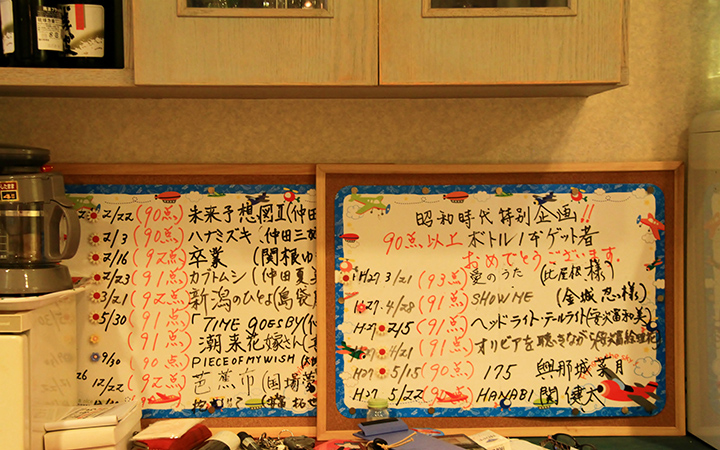 2/22 (90点) 未来予想図Ⅱ (仲田
2/3 (90点) ハナミズキ (仲田三
2/16 (92点) 卒業 (関根ゆ
2/23 (91点) カブトムシ (仲田夏美
3/21 (92点) 新潟のひとよ (島袋
5/30 (91点) 「TIME GOES BY (
(91点) 潮来花嫁さん
9/30 (90点) PIECE OF MY WISH
12/22 (92点) 芭蕉布 (国場
(91点)
昭和時代特別企画!!
90点以上 ボトル1本ゲット者
おめでとうございます。
H27 3/21 (93点) 愛のうた (比屋根様)
H27 4/28 (91点) SHOW ME (金城 忍様)
H27 2/15 (91点) ヘッドライト・テールライト (安次富和美)
H27 4/21 (91点) オリビアを聴きながら
H27 5/15 (90点) 175 與那城葉月
H27 5/22 (90点) HANABI 関 健太